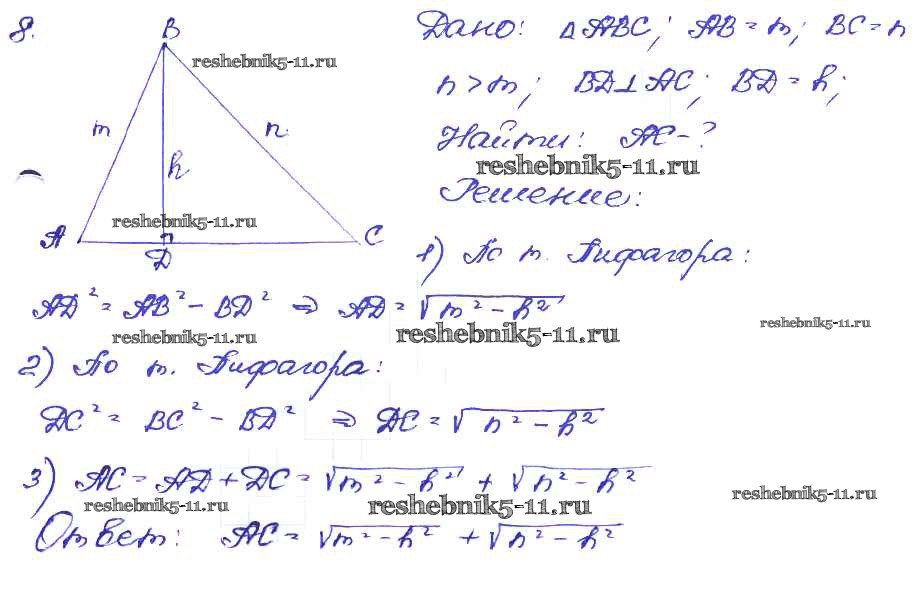 8.
B
reshebnik5-11.ru
Дано: △ABC; AB = m; BC = n
n > m; BD ⊥ AC; BD = h;
Найти: AC - ?
reshebnik5-11.ru
Решение:
m
n
h
reshebnik5-11.ru
A
D
C
1) По т. Пифагора:
AD² = AB² - BD² ⇒ AD = √(m² - h²)
reshebnik5-11.ru
reshebnik5-11.ru
reshebnik5-11.ru
2) По т. Пифагора:
DC² = BC² - BD² ⇒ DC = √(n² - h²)
3) AC = AD + DC = √(m² - h²) + √(n² - h²)
reshebnik5-11.ru
reshebnik5-11.ru
reshebnik5-11.ru
Ответ: AC = √(m² - h²) + √(n² - h²)